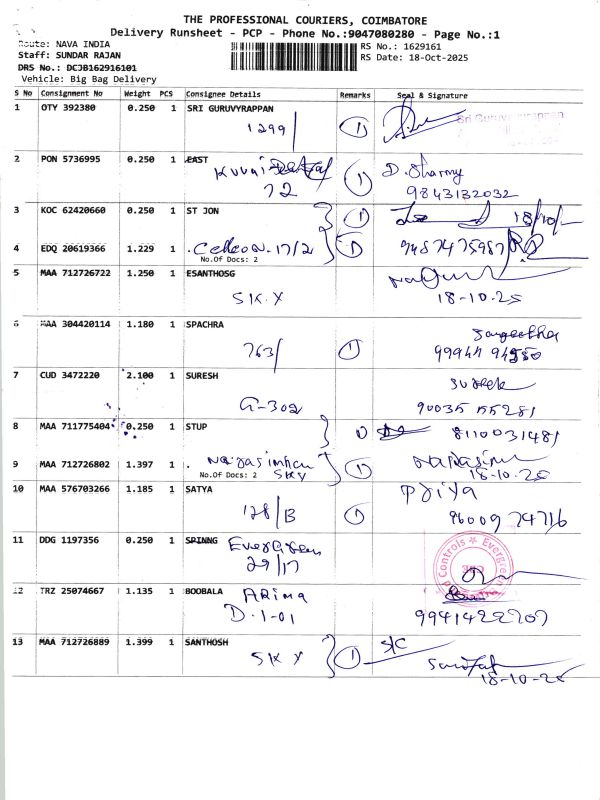 THE PROFESSIONAL COURIERS, COIMBATORE
Delivery Runsheet - PCP - Phone No.:9047080280 - Page No.:1
Route: NAVA INDIA
RS No.: 1629161
Staff: SUNDAR RAJAN
RS Date: 18-Oct-2025
DRS No.: DCJB162916101
Vehicle: Big Bag Delivery
S No Consignment No Weight PCS Consignee Details Remarks Seal & Signature
1 OTY 392380 0.250 1 SRI GURUVYRAPPAN
1299/ 1
Sri Guruvayurappan
2 PON 5736995 0.250 1 EAST
72 1 D. Sharmy
9843132032
3 KOC 62420660 0.250 1 ST JON
1 18/10/-
4 EDQ 20619366 1.229 1 . 17/2 1 9487475987
No.Of Docs: 2
5 MAA 712726722 1.250 1 ESANTHOSG
SKY 18-10-25
6 MAA 304420114 1.180 1 SPACHRA
763/ 1 Sangeetha
7 CUD 3472220 2.100 1 SURESH
G-302 Suresh
90035 55281
8 MAA 711775404 0.250 1 STUP
1 8110031481
9 MAA 712726802 1.397 1 . Narasimhan
No.Of Docs: 2 SKY 1 18-10-25
10 MAA 576703266 1.185 1 SATYA
128/B 1 Priya
96009 74716
11 DDG 1197356 0.250 1 SPINNG Evergreen
29/17
Controls ★ Evergreen
12 TRZ 25074667 1.135 1 BOOBALA Arima
D-1-01 9941422707
13 MAA 712726889 1.399 1 SANTHOSH
SKY 1 S/C
18-10-25